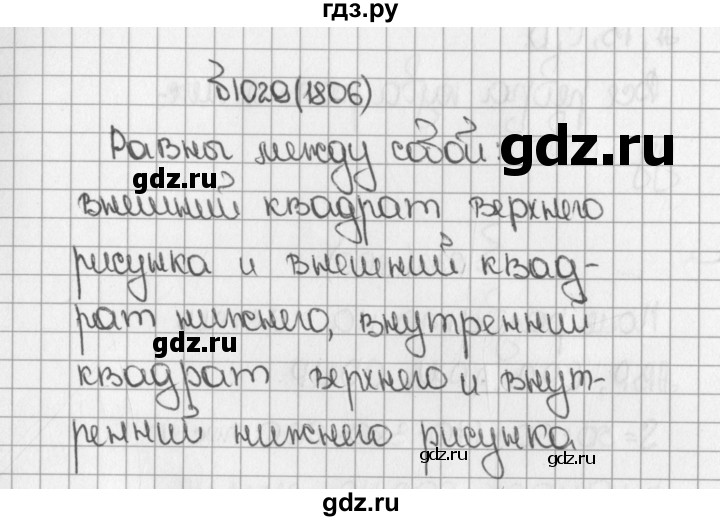 гдз.ру
1029(1806)
Равны между собой:
gdz.ru
gdz.ru
внешний квадрат верхнего
рисунка и внешний квад-
рат нижнего, внутренний
gdz.ru
квадрат верхнего и внут-
ренний нижнего рисунка
gdz.ru
gdz.ru
gdz.ru